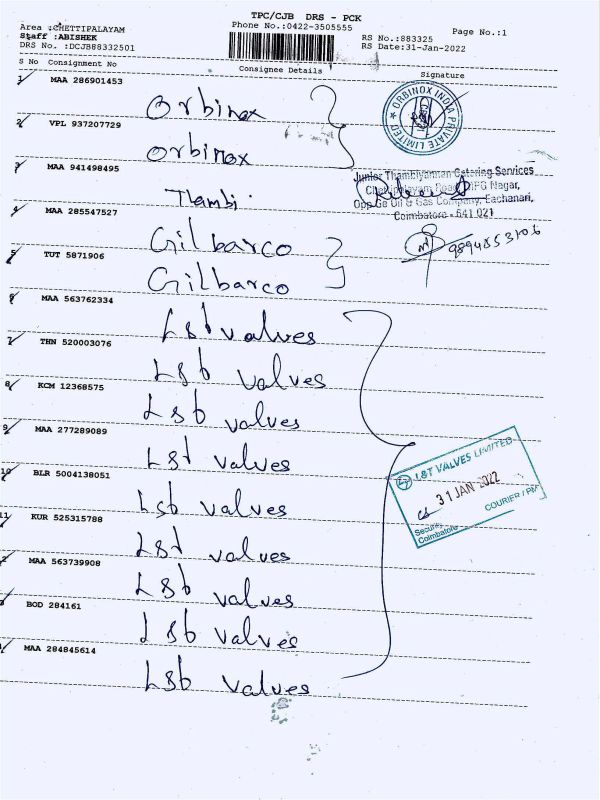 TPC/CJB DRS - PCK
Area :CHETTIPALAYAM
Phone No.:0422-3505555
Page No.:1
Staff :ABISHEK
RS No.:883325
DRS No. :DCJB88332501
RS Date:31-Jan-2022
S No Consignment No Consignee Details Signature
1 MAA 286901453
Orbinox
ORBINOX INDIA PRIVATE LIMITED
2 VPL 937207729
Orbinox
3 MAA 941498495
Thambi.
Junior Thambiyannan Catering Services
Chettipalayam Road, Nagar,
Opp Ge Oil & Gas Company, Eachanari,
Coimbatore - 641 021
4 MAA 285547527
Gilbarco
9894853106
5 TUT 5871906
Gilbarco
6 MAA 563762334
L&t valves
7 THN 520003076
L&b valves
8 KCM 12368575
L&b valves
9 MAA 277289089
L&t valves
L&T VALVES LIMITED
31 JAN 2022
COURIER /
Security
Coimbatore
10 BLR 5004138051
L&b valves
11 KUR 525315788
L&t valves
12 MAA 563739908
L&b valves
BOD 284161
L&b valves
MAA 284845614
L&b valves